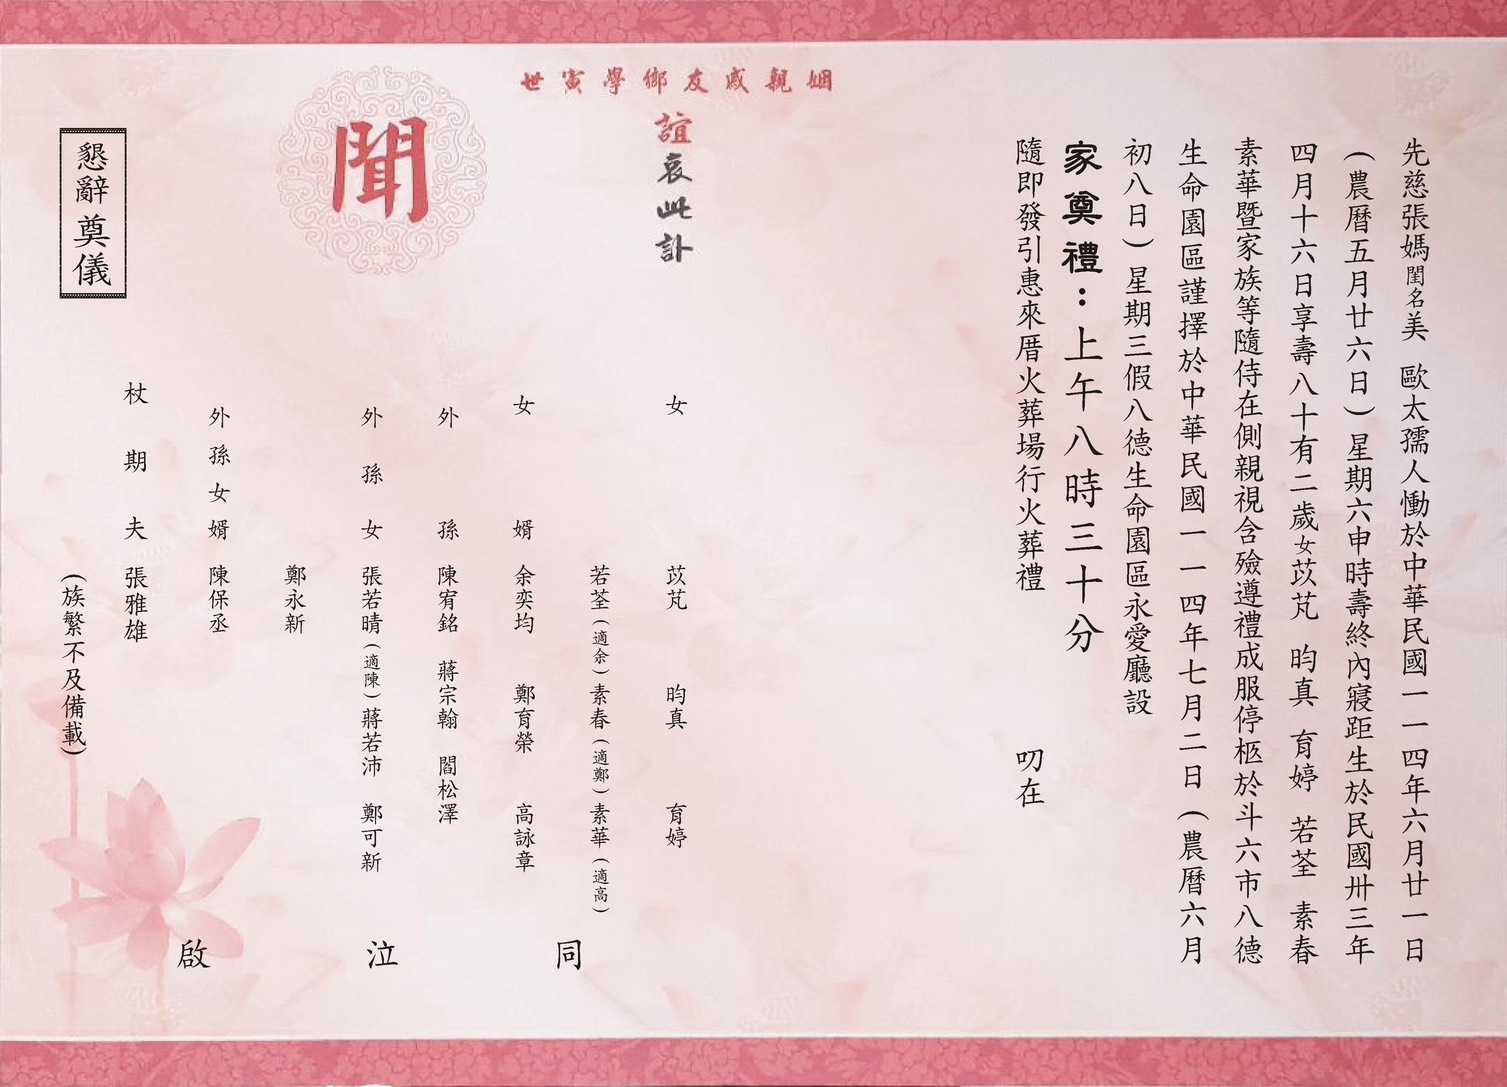 先慈張媽閨名美 歐太孺人慟於中華民國一一四年六月廿一日
(農曆五月廿六日)星期六申時壽終內寢距生於民國卅三年
四月十六日享壽八十有二歲女苡芃 昀真 育婷 若荃 素春
素華暨家族等隨侍在側親視含殮遵禮成服停柩於斗六市八德
生命園區謹擇於中華民國一一四年七月二日(農曆六月
初八日)星期三假八德生命園區永愛廳設
家奠禮:上午八時三十分
隨即發引惠來厝火葬場行火葬禮 叨在
姻親戚友鄉學寅世
誼哀此訃
聞
女 苡芃 昀真 育婷
若荃(適余)素春(適鄭)素華(適高)
女婿 余奕均 鄭育榮 高詠章
外孫 陳宥銘 蔣宗翰 閻松澤
外孫女 張若晴(適陳)蔣若沛 鄭可新
鄭永新
外孫女婿 陳保丞
杖期夫 張雅雄
(族繁不及備載)
同泣啟
懇辭奠儀